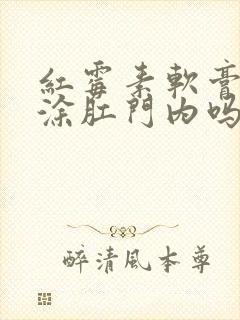 紅霉素軟膏
涂肛門内吗
醉清風本尊